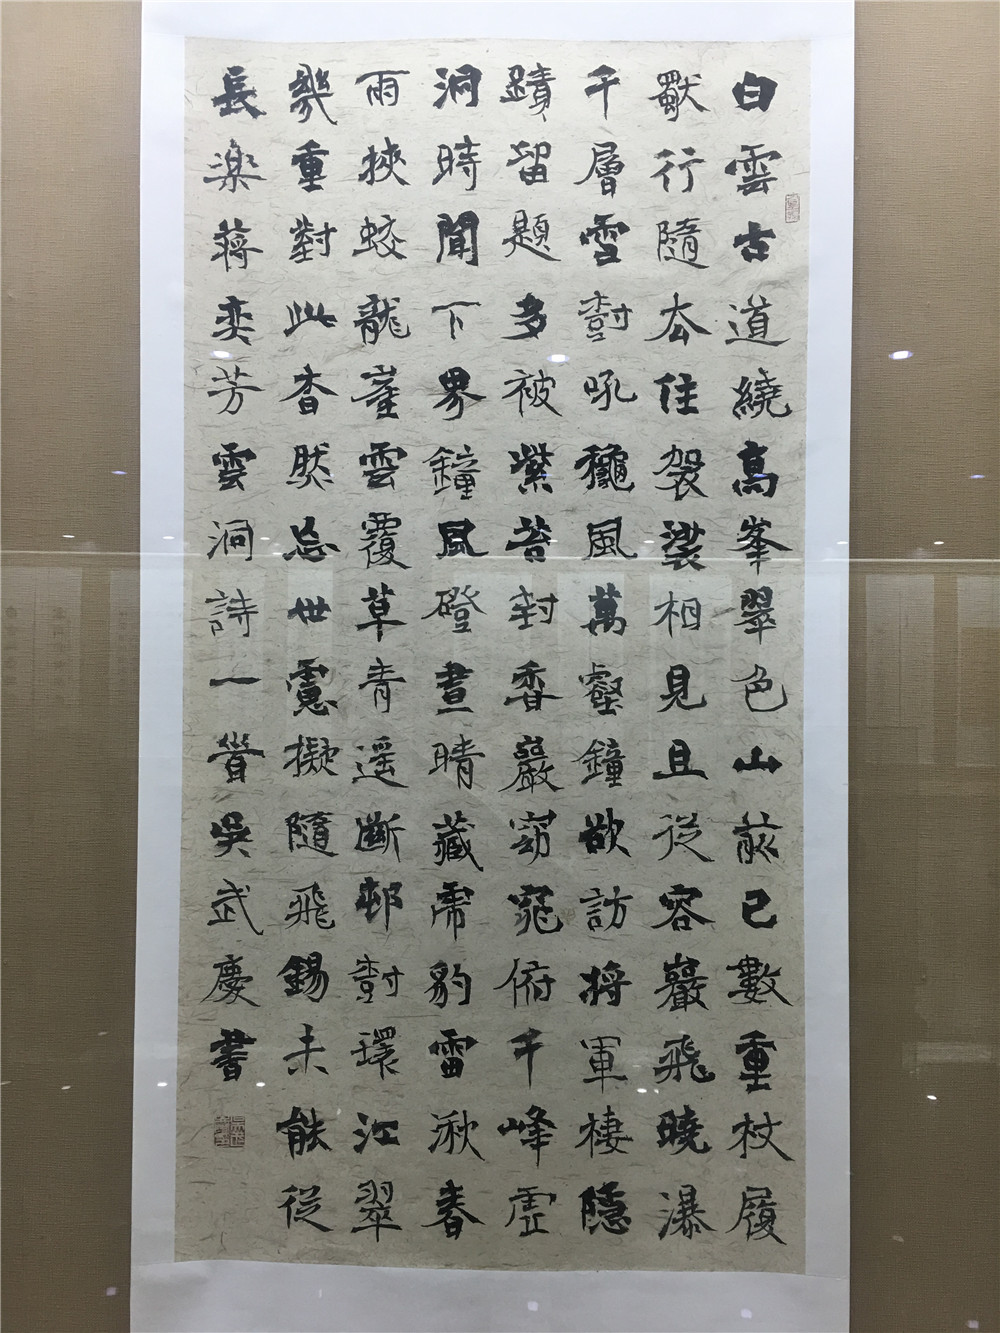 白雲古道繞高峯翠色山前已數重杖履
歇行隨去住袈裟相見且從容巖飛曉瀑
千層雪樹吼龝風萬壑鐘欲訪將軍棲隱
蹟留題多被紫苔封香巖窈窕俯千峰虛
洞時聞下界鐘風磴晝晴藏霧豹雷湫春
雨挾蛟龍崖雲覆草青遥斷邨樹環江翠
幾重對此杳然忘世慮擬隨飛錫未能從
長楽蔣奕芳雲洞詩一首吳武慶書